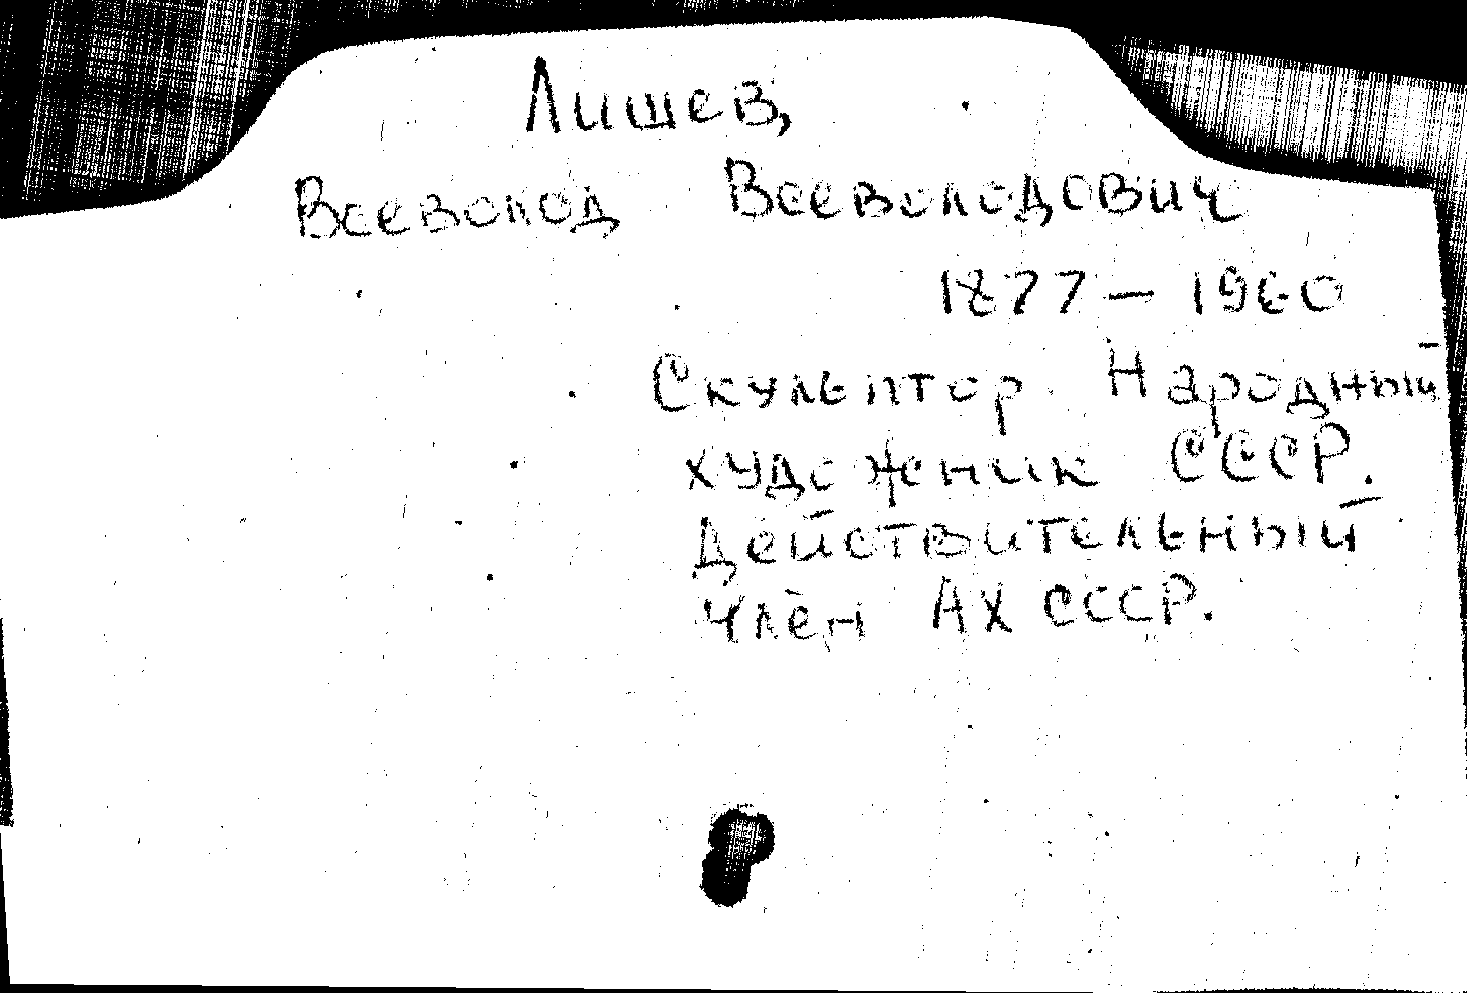 Лишев,
Всеволод Всеволодович
1877 – 1960
Скульптор. Народный
художник СССР.
Действительный
член АХ СССР.